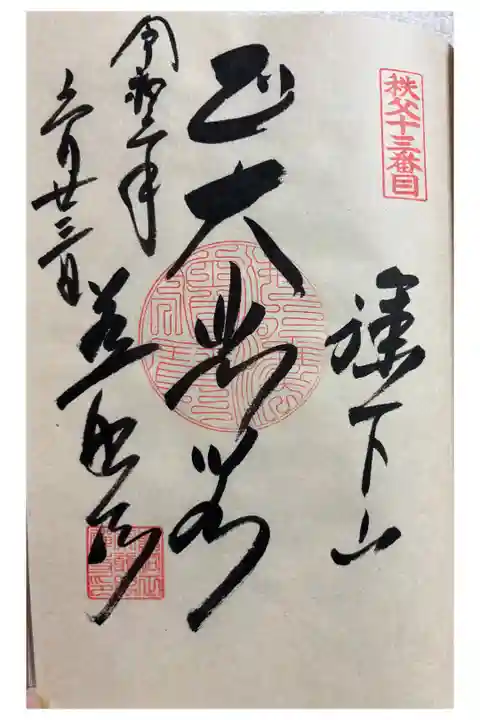 秩父十三番目
旗下山
大悲殿
令和二年
六月廿三日
慈眼寺